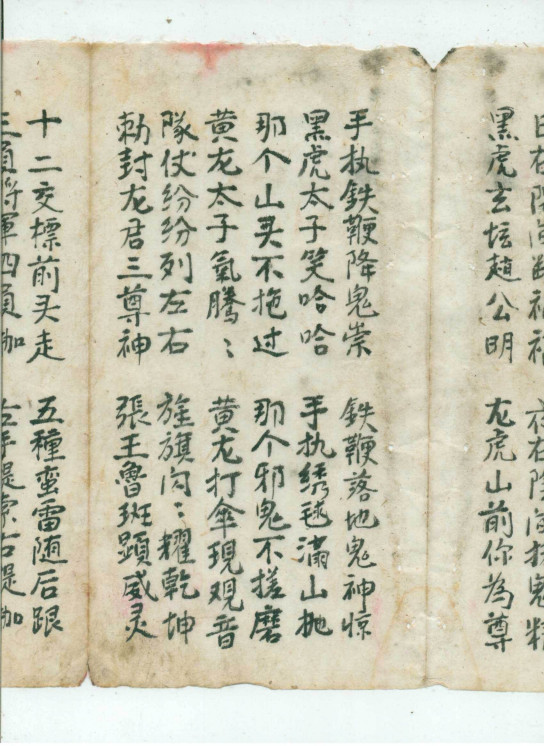 黑虎玄坛趙公明 龙虎山前你為尊
手执鉄鞭降鬼祟 鉄鞭落地鬼神惊
黑虎太子笑哈哈 手执绣毬满山抛
那个山头不拖过 那个邪鬼不搓磨
黄龙太子氣騰〻 黄龙打傘現观音
隊仗纷纷列左右 旌旗闪〻耀乾坤
勅封龙君三尊神 張王魯班顕威灵
十二交標前头走 五種蛮雷随后跟